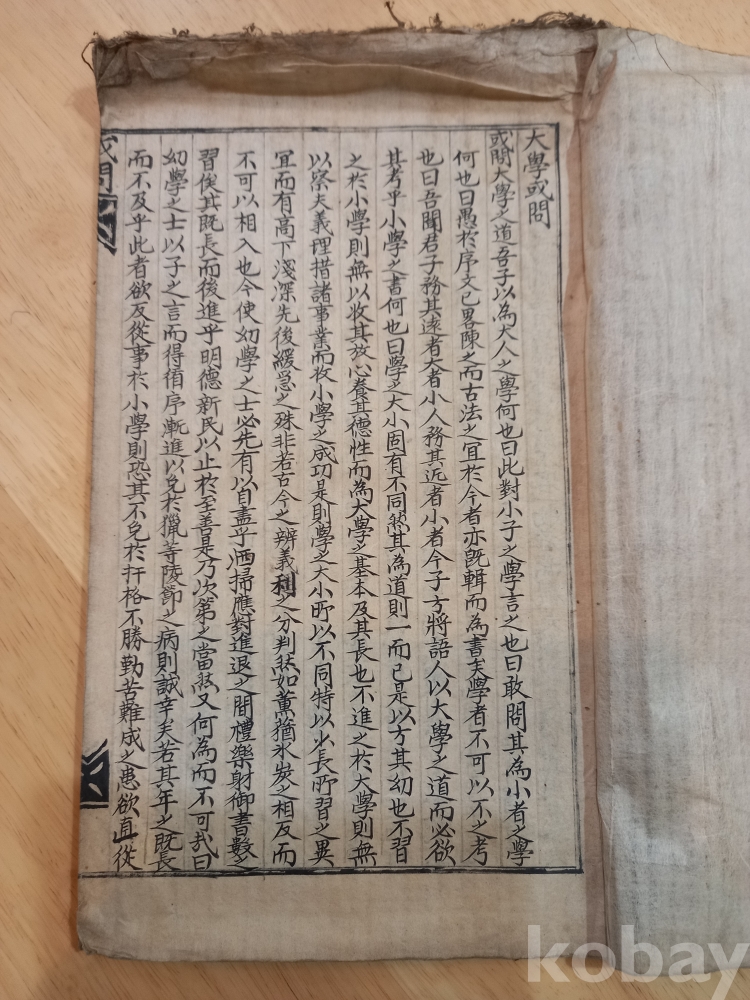 大學或問
或問大學之道吾子以為大人之學何也曰此對小子之學言之也曰敢問其為小者之學
何也曰愚於序文已畧陳之而古法之宜於今者亦旣輯而為書矣學者不可以不之考
也曰吾聞君子務其遠者大者小人務其近者小者今子方將語人以大學之道而必欲
其考乎小學之書何也曰學之大小固有不同然其為道則一而已是以方其幼也不習
之於小學則無以收其放心養其德性而為大學之基本及其長也不進之於大學則無
以察夫義理措諸事業而收小學之成功是則學之大小所以不同特以少長所習之異
宜而有高下淺深先後緩急之殊非若古今之辨義利之分判然如薰蕕氷炭之相反而
不可以相入也今使幼學之士必先有以自盡乎洒掃應對進退之間禮樂射御書數之
習俟其旣長而後進乎明德新民以止於至善是乃次第之當然又何為而不可哉曰
幼學之士以子之言而得循序漸進以免於獵等陵節之病則誠幸矣若其年之旣長
而不及乎此者欲反從事於小學則恐其不免於扞格不勝勤苦難成之患欲直從
或問
kobay